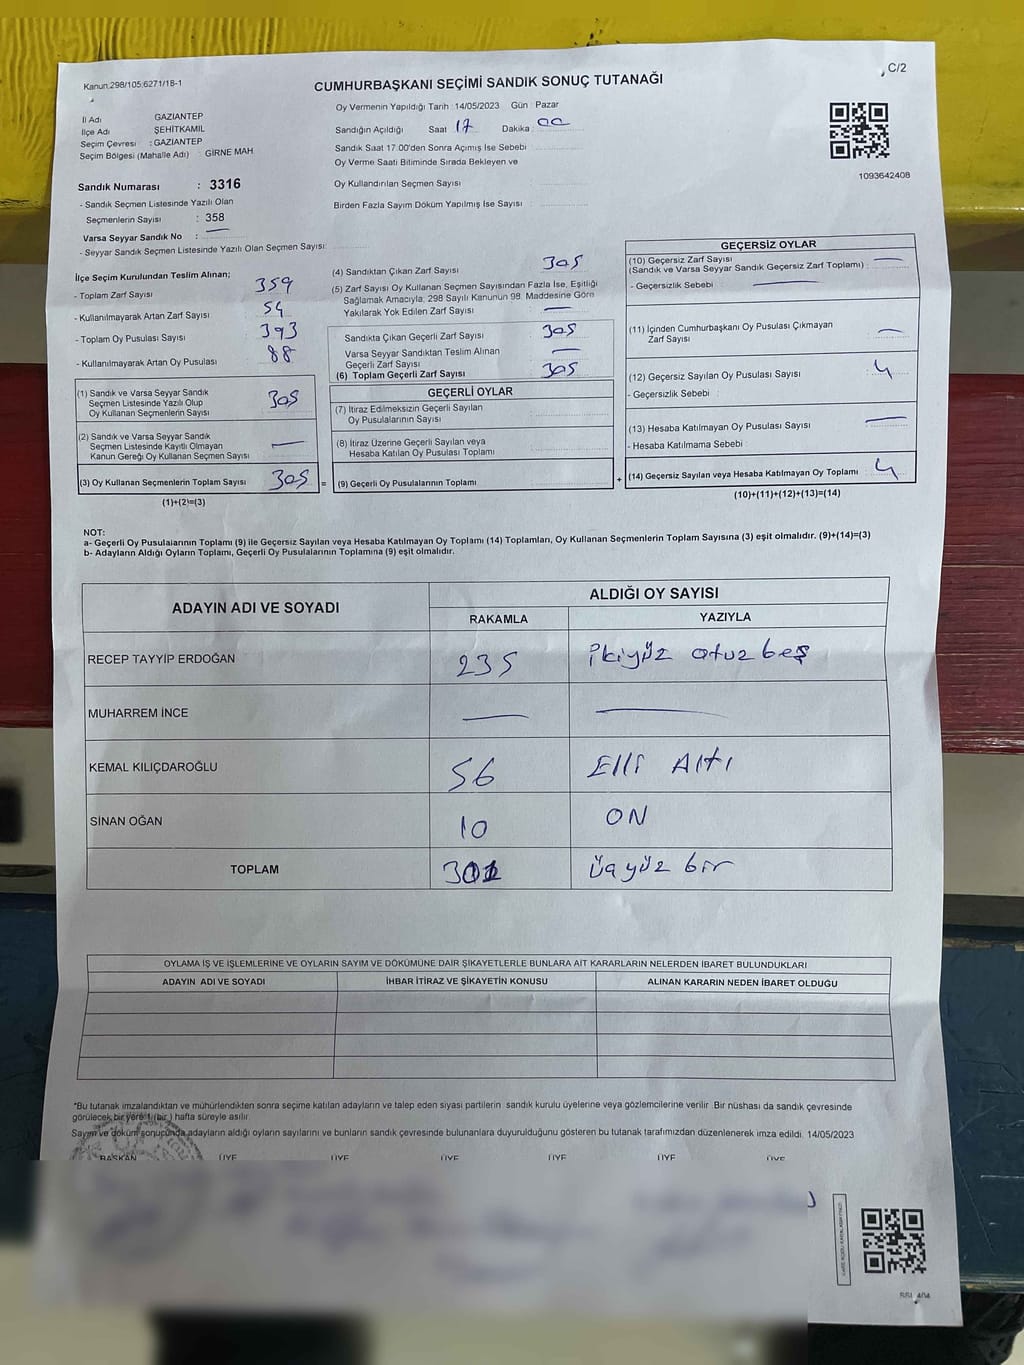 Kanun:298/105;6271/18-1
C/2
CUMHURBAŞKANI SEÇİMİ SANDIK SONUÇ TUTANAĞI
İl Adı GAZIANTEP
İlçe Adı ŞEHİTKAMIL
Seçim Çevresi : GAZIANTEP
Seçim Bölgesi (Mahalle Adı) : GİRNE MAH.
Oy Vermenin Yapıldığı Tarih :14/05/2023 Gün : Pazar
Sandığın Açıldığı Saat 17 Dakika 00
Sandık Saat 17.00'den Sonra Açımış İse Sebebi
Oy Verme Saati Bitiminde Sırada Bekleyen ve
Oy Kullandırılan Seçmen Sayısı
Birden Fazla Sayım Döküm Yapılmış İse Sayısı :
1093642408
Sandık Numarası : 3316
- Sandık Seçmen Listesinde Yazılı Olan
Seçmenlerin Sayısı : 358
Varsa Seyyar Sandık No : —
- Seyyar Sandık Seçmen Listesinde Yazılı Olan Seçmen Sayısı:
İlçe Seçim Kurulundan Teslim Alınan;
- Toplam Zarf Sayısı 359
- Kullanılmayarak Artan Zarf Sayısı 54
- Toplam Oy Pusulası Sayısı 393
- Kullanılmayarak Artan Oy Pusulası 88
(1) Sandık ve Varsa Seyyar Sandık
Seçmen Listesinde Yazılı Olup
Oy Kullanan Seçmenlerin Sayısı 305
(2) Sandık ve Varsa Seyyar Sandık
Seçmen Listesinde Kayıtlı Olmayan
Kanun Gereği Oy Kullanan Seçmen Sayısı —
(3) Oy Kullanan Seçmenlerin Toplam Sayısı 305 =
(1)+(2)=(3)
(4) Sandıktan Çıkan Zarf Sayısı 305
(5) Zarf Sayısı Oy Kullanan Seçmen Sayısından Fazla İse, Eşitliği
Sağlamak Amacıyla, 298 Sayılı Kanunun 98. Maddesine Göre
Yakılarak Yok Edilen Zarf Sayısı —
Sandıkta Çıkan Geçerli Zarf Sayısı 305
Varsa Seyyar Sandıktan Teslim Alınan
Geçerli Zarf Sayısı —
(6) Toplam Geçerli Zarf Sayısı 305
GEÇERLİ OYLAR
(7) İtiraz Edilmeksizin Geçerli Sayılan
Oy Pusulalarının Sayısı
(8) İtiraz Üzerine Geçerli Sayılan veya
Hesaba Katılan Oy Pusulası Toplamı
(9) Geçerli Oy Pusulalarının Toplamı +
GEÇERSİZ OYLAR
(10) Geçersiz Zarf Sayısı
(Sandık ve Varsa Seyyar Sandık Geçersiz Zarf Toplamı) : —
- Geçersizlik Sebebi : —
(11) İçinden Cumhurbaşkanı Oy Pusulası Çıkmayan
Zarf Sayısı —
(12) Geçersiz Sayılan Oy Pusulası Sayısı 4
- Geçersizlik Sebebi :
(13) Hesaba Katılmayan Oy Pusulası Sayısı —
- Hesaba Katılmama Sebebi :
(14) Geçersiz Sayılan veya Hesaba Katılmayan Oy Toplamı 4
(10)+(11)+(12)+(13)=(14)
NOT:
a- Geçerli Oy Pusulalarının Toplamı (9) ile Geçersiz Sayılan veya Hesaba Katılmayan Oy Toplamı (14) Toplamları, Oy Kullanan Seçmenlerin Toplam Sayısına (3) eşit olmalıdır. (9)+(14)=(3)
b- Adayların Aldığı Oyların Toplamı, Geçerli Oy Pusulalarının Toplamına (9) eşit olmalıdır.
ADAYIN ADI VE SOYADI ALDIĞI OY SAYISI
RAKAMLA YAZIYLA
RECEP TAYYİP ERDOĞAN 235 ikiyüz otuz beş
MUHARREM İNCE — —
KEMAL KILIÇDAROĞLU 56 Elli Altı
SİNAN OĞAN 10 ON
TOPLAM 301 üçyüz bir
OYLAMA İŞ VE İŞLEMLERİNE VE OYLARIN SAYIM VE DÖKÜMÜNE DAİR ŞİKAYETLERLE BUNLARA AİT KARARLARIN NELERDEN İBARET BULUNDUKLARI
ADAYIN ADI VE SOYADI İHBAR İTİRAZ VE ŞİKAYETİN KONUSU ALINAN KARARIN NEDEN İBARET OLDUĞU
*Bu tutanak imzalandıktan ve mühürlendikten sonra seçime katılan adayların ve talep eden siyasi partilerin sandık kurulu üyelerine veya gözlemcilerine verilir. Bir nüshası da sandık çevresinde
görülecek bir yere 1 (bir ) hafta süreyle asılır.
Sayım ve döküm sonucunda adayların aldığı oyların sayılarını ve bunların sandık çevresinde bulunanlara duyurulduğunu gösteren bu tutanak tarafımızdan düzenlenerek imza edildi. 14/05/2023
BAŞKAN ÜYE ÜYE ÜYE ÜYE ÜYE ÜYE